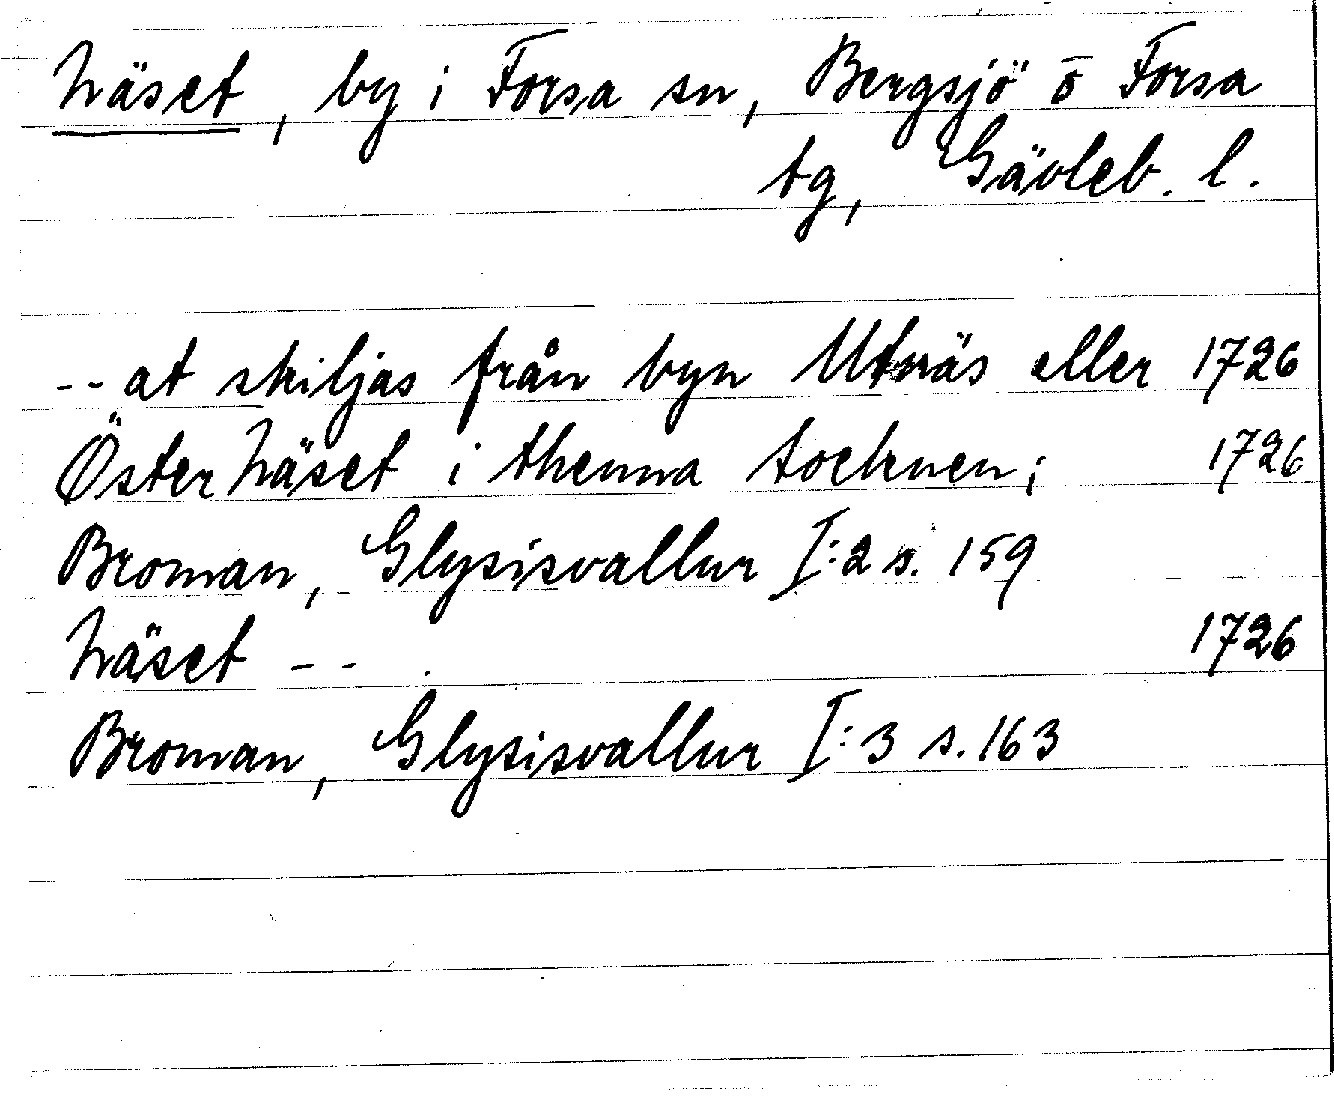 Näset, by i Forsa sn, Bergsjö o Forsa
tg, Gävleb. l.
-- at skiljas från byn Utnäs eller 1726
Öster Näset i thenna socknen; 1726
Broman, Glysisvallur I:2 s. 159
Näset -- . 1726
Broman, Glysisvallur I:3 s. 163